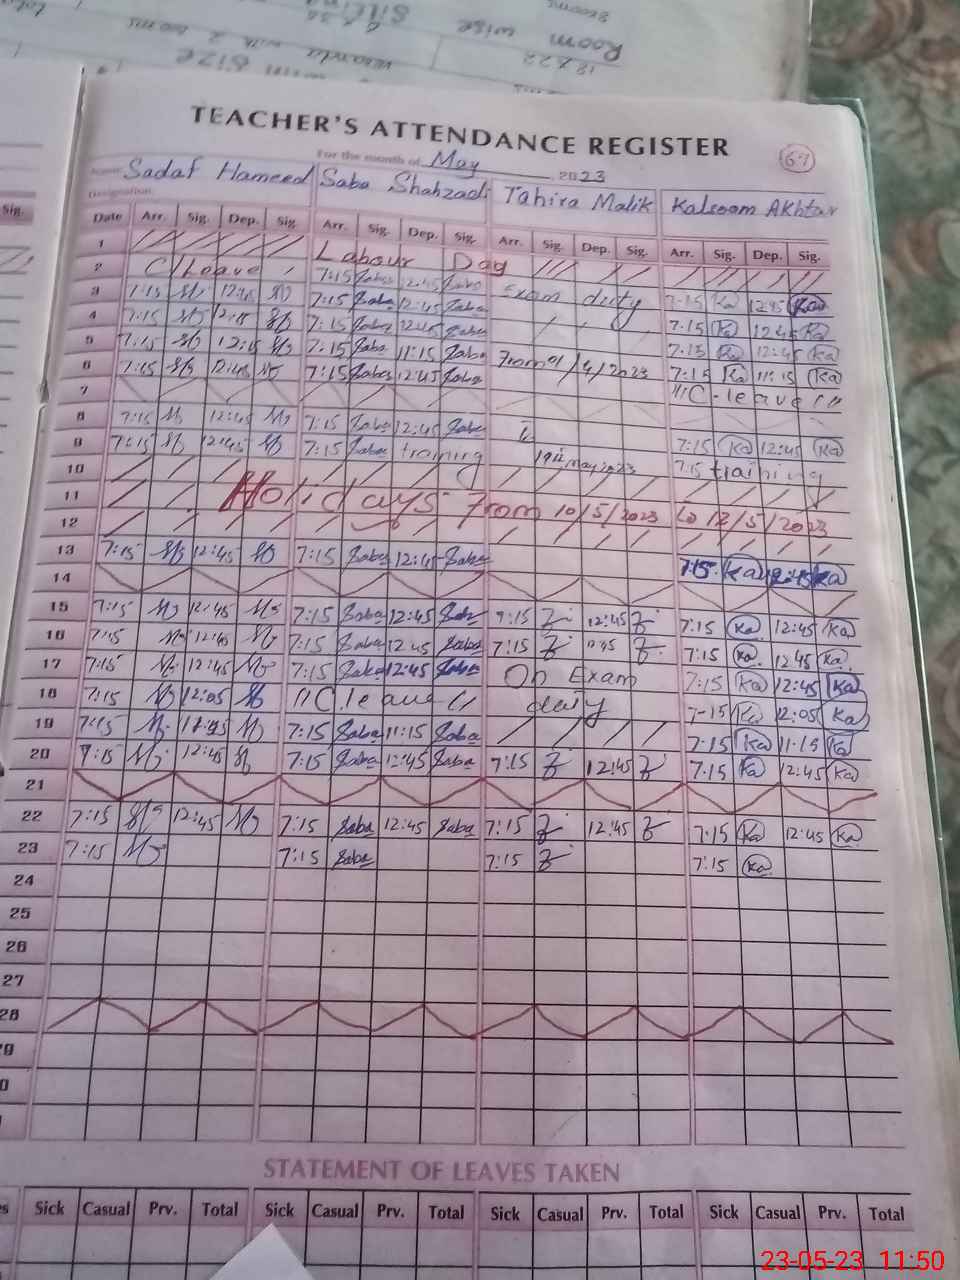 Room wise
18 x 22
TEACHER'S ATTENDANCE REGISTER
67
For the month of May 2023
Name Sadaf Hameed Saba Shahzadi Tahira Malik Kalsoom Akhtar
Designation
Sig. Date Arr. Sig. Dep. Sig. Arr. Sig. Dep. Sig. Arr. Sig. Dep. Sig. Arr. Sig. Dep. Sig.
1 Labour Day
2 C/Leave 7:15 Saba 12:45 Saba Exam duty 7:15 Ka 12:45 Ka
3 7:15 12:45 7:15 Saba 12:45 Saba 7:15 Ka 12:45 Ka
4 7:15 12:45 7:15 Saba 12:45 Saba 7:15 Ka 12:45 Ka
5 7:15 12:15 7:15 Saba 11:15 Saba From 4/2023 7:15 Ka 11:15 Ka
6 7:15 12:45 7:15 Saba 12:45 Saba "C-leave"
7
8 7:15 12:45 7:15 Saba 12:45 Saba 7:15 Ka 12:45 Ka
9 7:15 12:45 7:15 Saba training 19 May 2023 7:15 training
10
11 Holidays From 10/5/2023 to 12/5/2023
12
13 7:15 12:45 7:15 Saba 12:45 Saba 7:15 Ka 12:45 Ka
14
15 7:15 12:45 7:15 Saba 12:45 Saba 7:15 12:45 7:15 Ka 12:45 Ka
16 7:15 12:45 7:15 Saba 12:45 Saba 7:15 7:15 Ka 12:45 Ka
17 7:15 12:45 7:15 Saba 12:45 Saba On Exam 7:15 Ka 12:45 Ka
18 7:15 12:05 "C.leave" duty 7-15 Ka 12:05 Ka
19 7:15 7:15 Saba 11:15 Saba 7:15 Ka 11:15 Ka
20 7:15 12:45 7:15 Saba 12:45 Saba 7:15 12:45 7:15 Ka 12:45 Ka
21
22 7:15 12:45 7:15 Saba 12:45 Saba 7:15 12:45 7:15 Ka 12:45 Ka
23 7:15 7:15 Saba 7:15 7:15 Ka
24
25
26
27
28
STATEMENT OF LEAVES TAKEN
Sick Casual Prv. Total Sick Casual Prv. Total Sick Casual Prv. Total Sick Casual Prv. Total
23-05-23 11:50